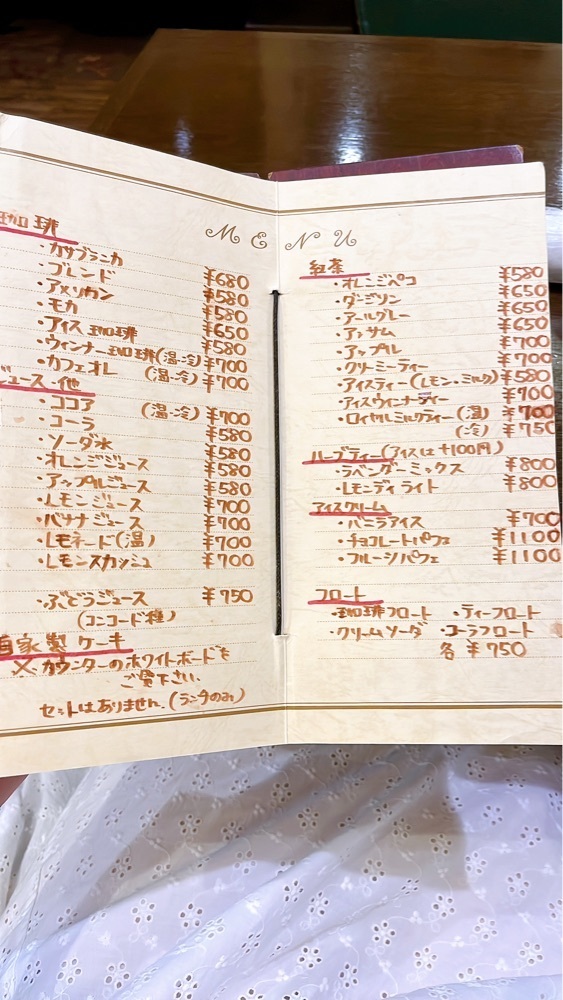 MENU
珈琲
・カサブランカ ¥680
・ブレンド ¥580
・アメリカン ¥580
・モカ ¥650
・アイス珈琲 ¥580
・ウィンナー珈琲(温・冷) ¥700
・カフェオレ (温・冷) ¥700
ジュース・他
・ココア (温・冷) ¥700
・コーラ ¥580
・ソーダ水 ¥580
・オレンジジュース ¥580
・アップルジュース ¥580
・レモンジュース ¥700
・バナナジュース ¥700
・レモネード(温) ¥700
・レモンスカッシュ ¥700
・ぶどうジュース ¥750
(コンコード種)
自家製ケーキ
※カウンターのホワイトボードを
ご覧下さい。
セットはありません。(ランチのみ)
紅茶
・オレンジペコ ¥580
・ダージリン ¥650
・アールグレー ¥650
・アッサム ¥650
・アップル ¥700
・クリーミーティー ¥700
・アイスティー(レモン・ミルク) ¥580
・アイスウィンナーティー ¥700
・ロイヤルミルクティー(温) ¥700
(冷) ¥750
ハーブティー(アイスは+100円)
・ラベンダーミックス ¥800
・レモンディライト ¥800
アイスクリーム
・バニラアイス ¥700
・チョコレートパフェ ¥1100
・フルーツパフェ ¥1100
フロート
・珈琲フロート ・ティーフロート
・クリームソーダ ・コーラフロート
各 ¥750